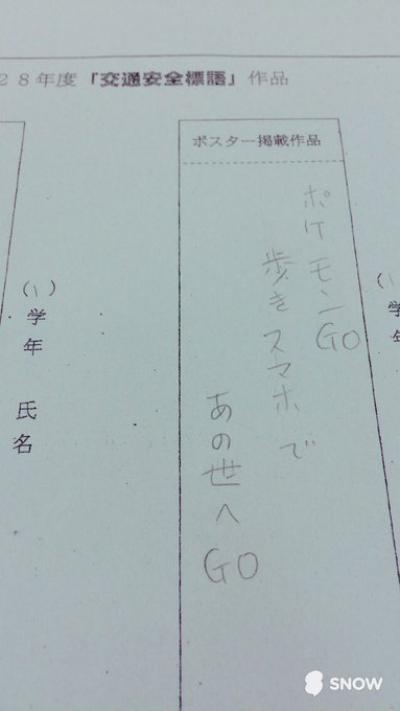 28年度「交通安全標語」作品
ポスター掲載作品
ポケモンGO
歩きスマホで
あの世へGO
(1)
学年
氏名
(1
学
年
SNOW